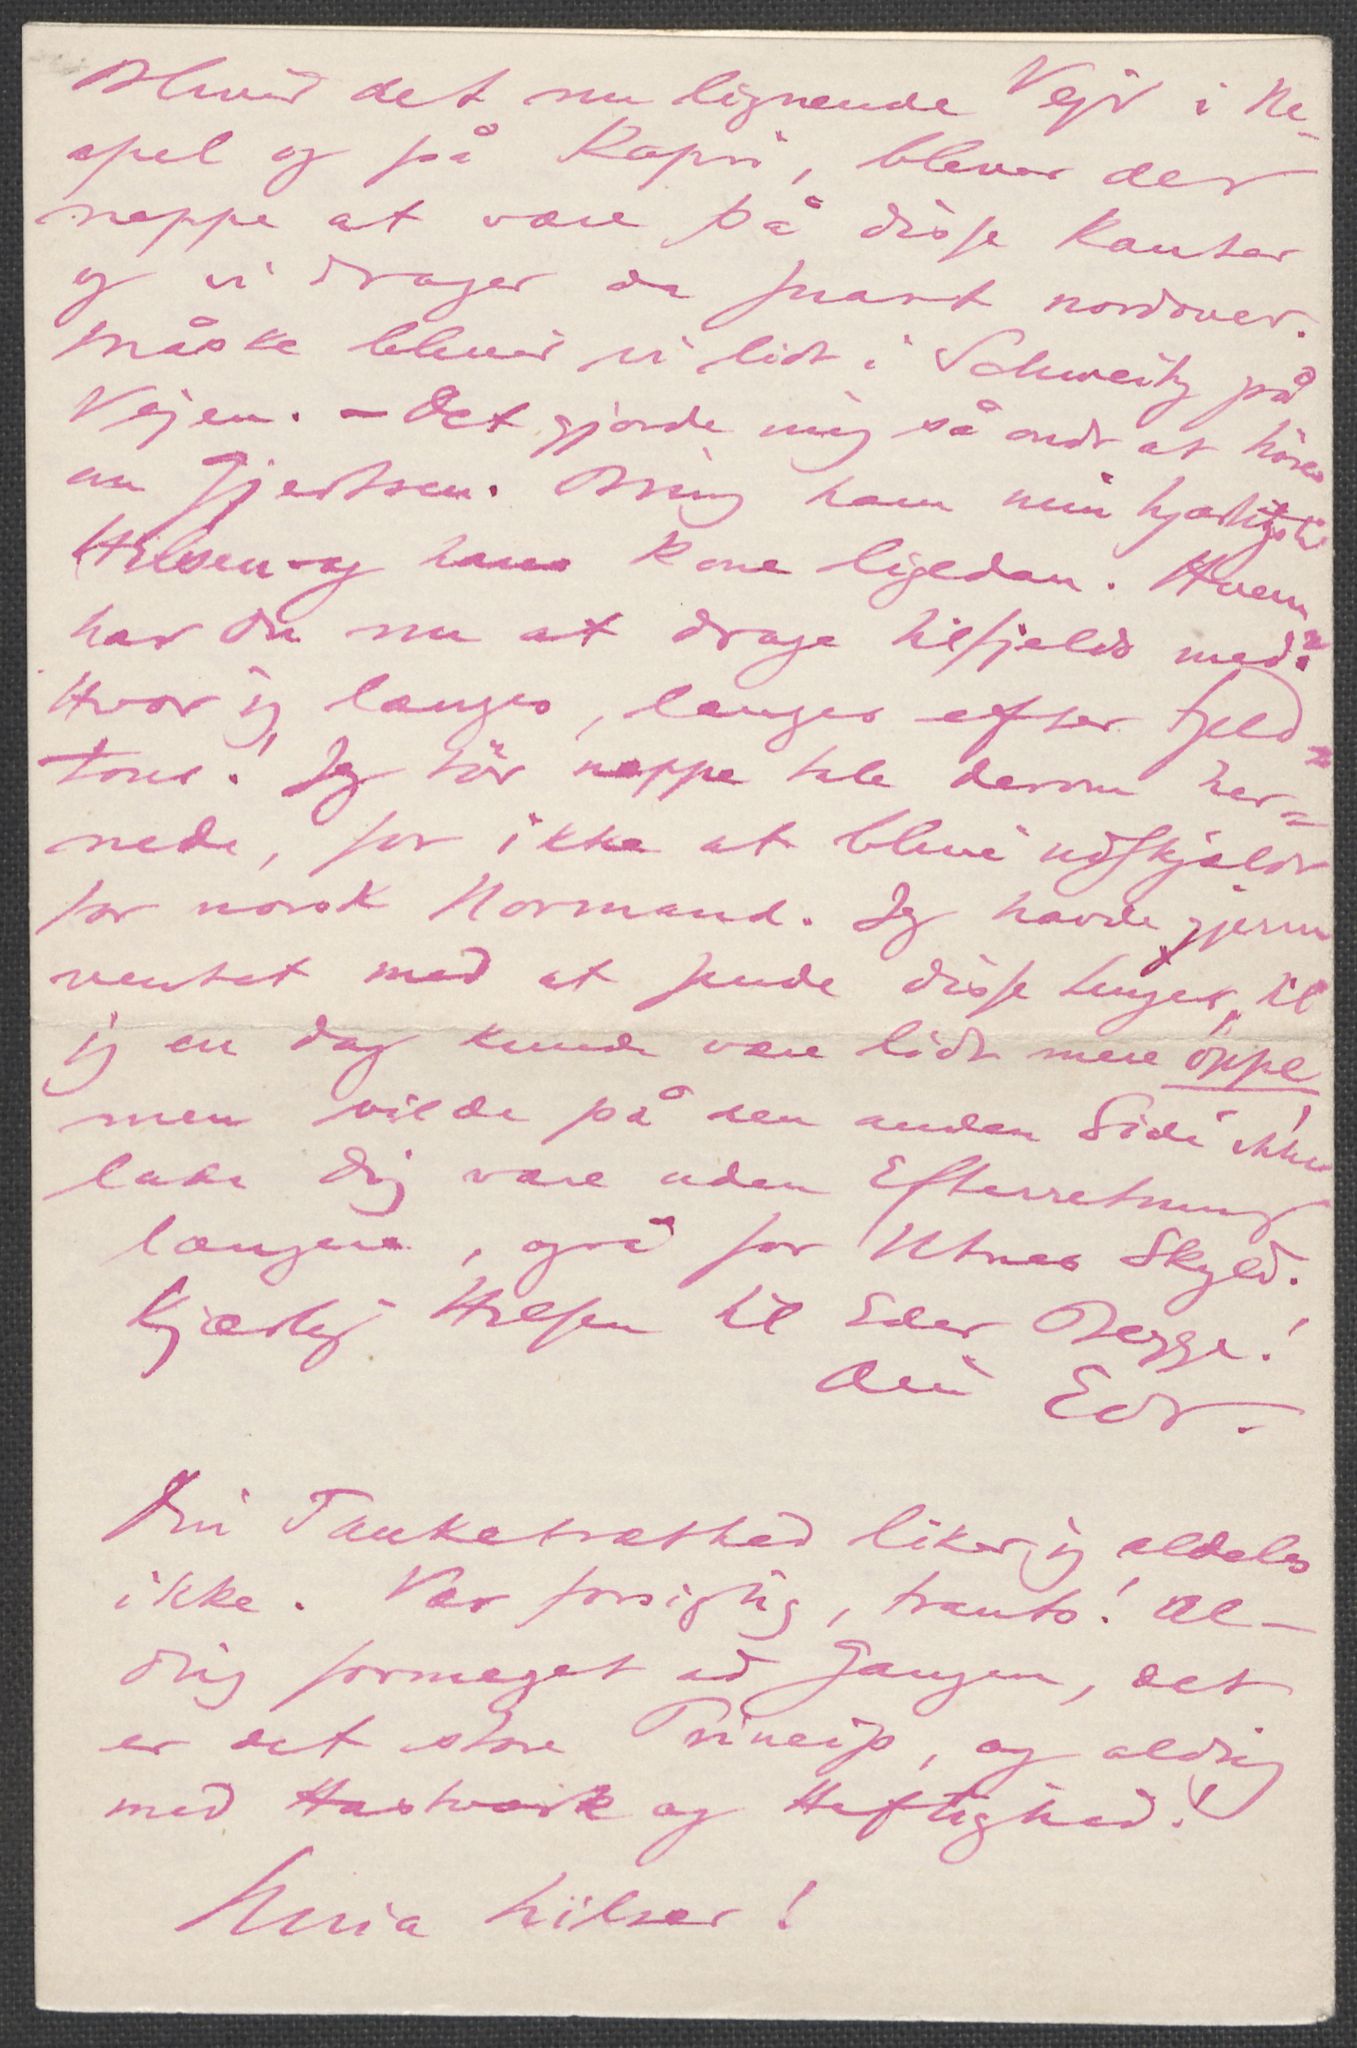 Bliver det nu lignende Vejr i Ne-
apel og på Kapri, bliver der
neppe at være på disse Kanter
og vi drager da snart nordover.
Måske bliver vi lidt i Schweitz på
Vejen. – Det gjorde mig så ondt at höre
om Gjertsen. Bring ham min hjerteligste
Hilsen og hans Kone ligedan. Hvem
har Du nu at drage tilfjelds med?
Hvor jeg længes, længes efter Fjeld-
turer! Jeg tör neppe tale derom her-
nede, for ikke at blive udskjældt
for norsk Normand. Jeg havde gjerne
ventet med at sende disse Linjer, til
jeg en Dag kunde være lidt mere oppe
men vilde på den anden Side ikke
lade Dig være uden Efterretning
længere, også for Utnes Skyld.
Kjærlig Hilsen til Eder Begge!
Din Edv.
Din Tanketræthed liker jeg aldeles
ikke. Vær forsigtig, Frants! Al-
drig formeget ad Gangen, det
er det store Princip, og aldrig
med Hastværk og Heftighed!
Nina hilser!